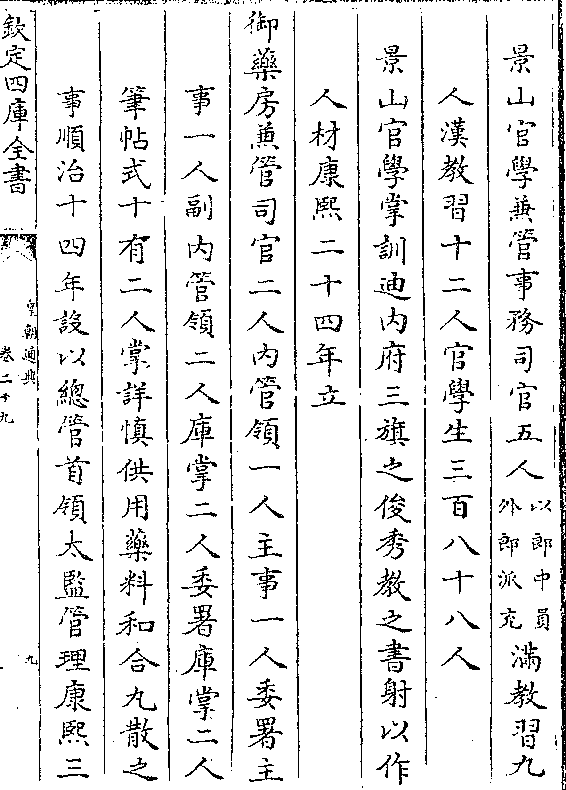 景山官學兼管事務司官五人以郎中員外郎派充滿教習九
人漢教習十二人官學生三百八十八人
景山官學掌訓迪内府三旗之俊秀教之書射以作
人材康熙二十四年立
御藥房兼管司官二人内管領一人主事一人委署主
事一人副内管領二人庫掌二人委署庫掌二人
筆帖式十有二人掌詳慎供用藥料和合丸散之
事順治十四年設以總管首領太監管理康熙三
欽定四庫全書
皇朝通典
卷二十九
九